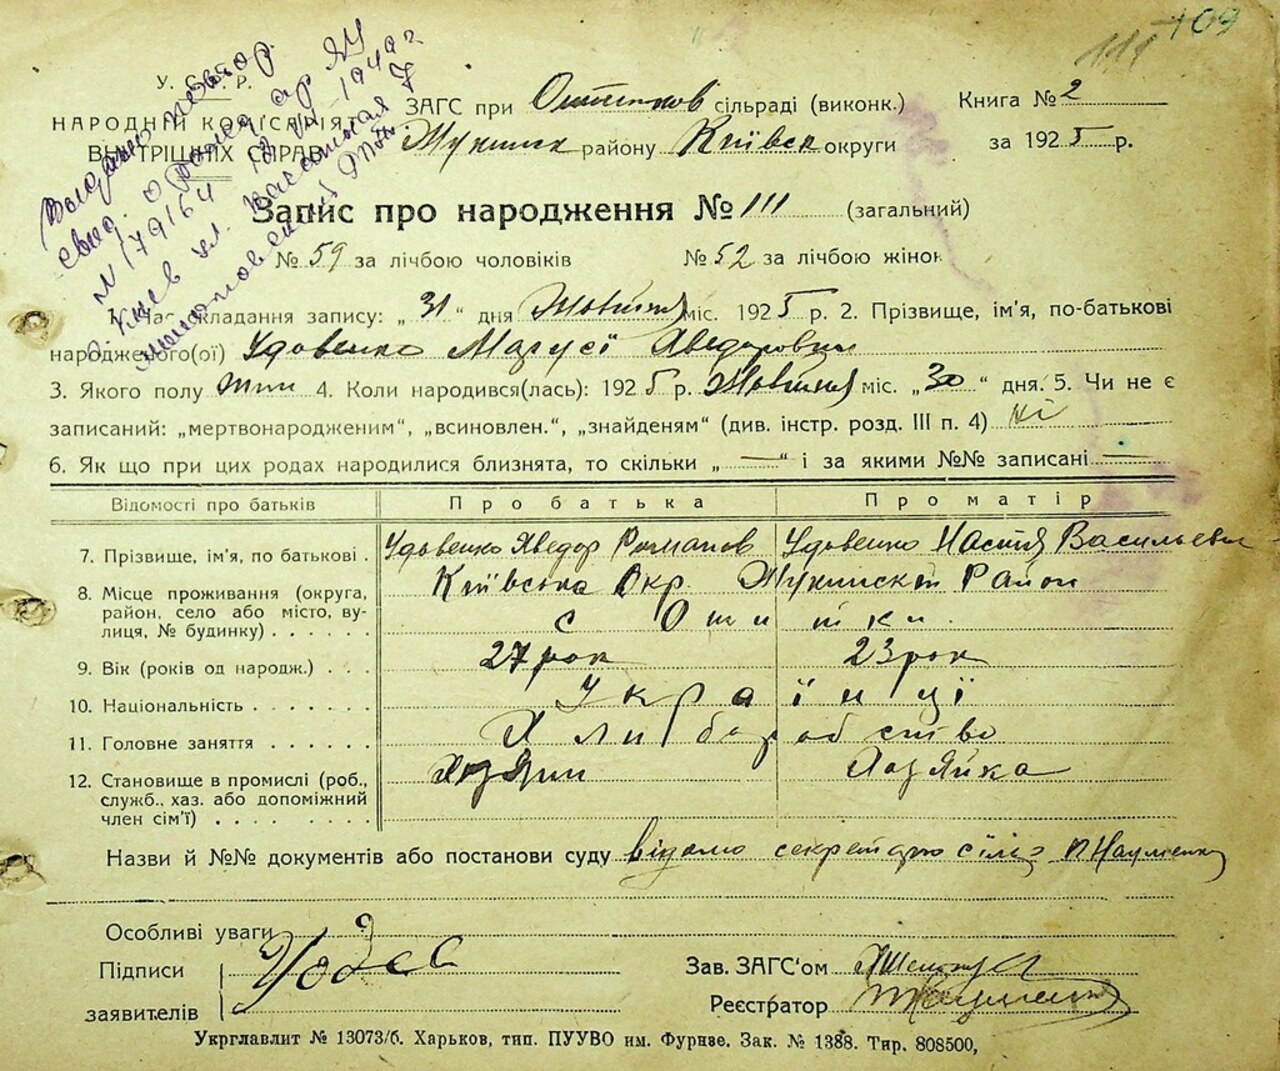 111 109
Выдано повтор.
свид. о рожд сер ЯЦ
N 179164 1940 г
г. Киев ул.
У. С. Р. Р.
НАРОДНІЙ КОМІСАРІЯТ
ВНУТРІШНІХ СПРАВ
ЗАГС при сільраді (виконк.) Книга № 2
району Київськ округи за 1925 р.
Запис про народження № 111 (загальний)
№ 59 за лічбою чоловіків № 52 за лічбою жінок
1. Час складання запису: „ 31 “ дня Жовтня міс. 1925 р. 2. Прізвище, ім'я, по-батькові
народженого(ої) Удовенко Марусі Хведоровни
3. Якого полу жін 4. Коли народився(лась): 1925 р. Жовтня міс. „ 30 “ дня. 5. Чи не є
записаний: „мертвонародженим“, „всиновлен.“, „знайденям“ (див. інстр. розд. III п. 4) ні
6. Як що при цих родах народилися близнята, то скільки „ — “ і за якими №№ записані —
Відомості про батьків Про батька Про матір
7. Прізвище, ім'я, по батькові . Удовенко Хведор Романов Удовенко Настя Васильевн
8. Місце проживання (округа, Київська Окр. Район
район, село або місто, ву- с
лиця, № будинку) . . . . . .
9. Вік (років од народж.) . . . 27 рок 23 рок
10. Національність . . . . . . . Українці
11. Головне заняття . . . . . . Хлиборобство
12. Становище в промислі (роб., Хозяин Хозяйка
служб., хаз. або допоміжний
член сім'ї) . . . . . . . .
Назви й №№ документів або постанови суду відомо секретарю П Науменко
Особливі уваги
Підписи Зав. ЗАГС'ом
заявителів Реєстратор ПНауменко
Укрглавліт № 13073/б. Харьков, тип. ПУУВО им. Фрунзе. Зак. № 1388. Тир. 808500,